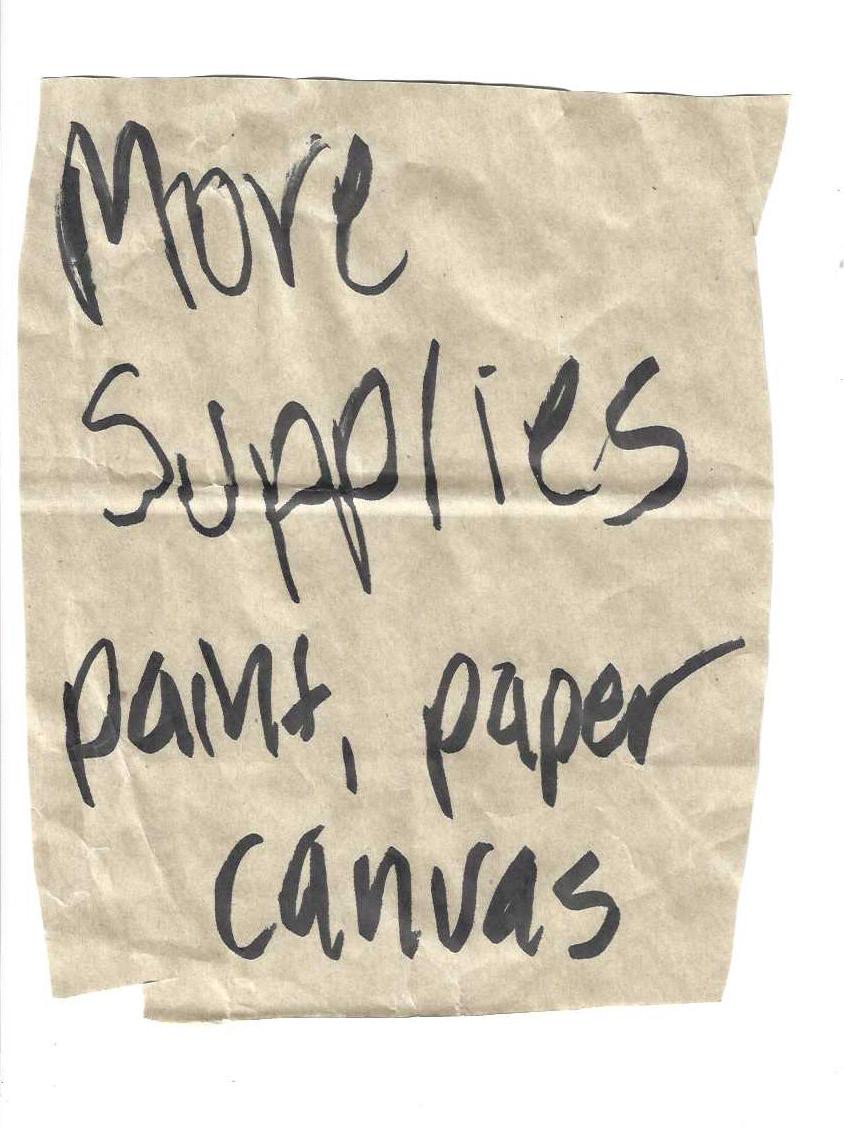 More
Supplies
paint, paper
canvas